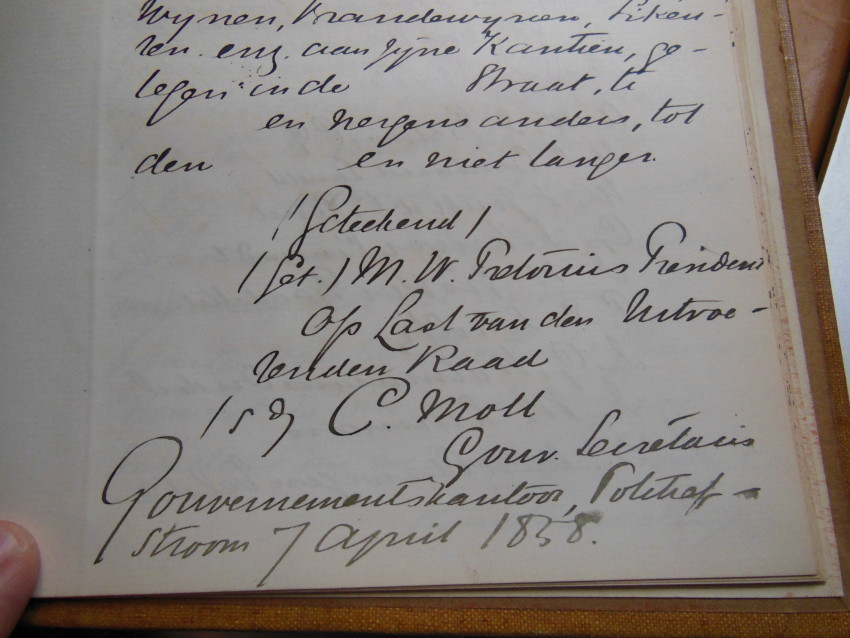 Wynen, Brandewynen, Liken-
ren enz. aan zyne Kantien, ge-
legen in de Straat, te
en nergens anders, tot
den en niet langer.
(Geteekend)
(Get.) M. W. Pretorius President
Op Last van den Uitvoe-
renden Raad
(sd) C. Moll
Gouv. Secretaris
Gouvernementskantoor, Potchef-
stroom 7 April 1858.